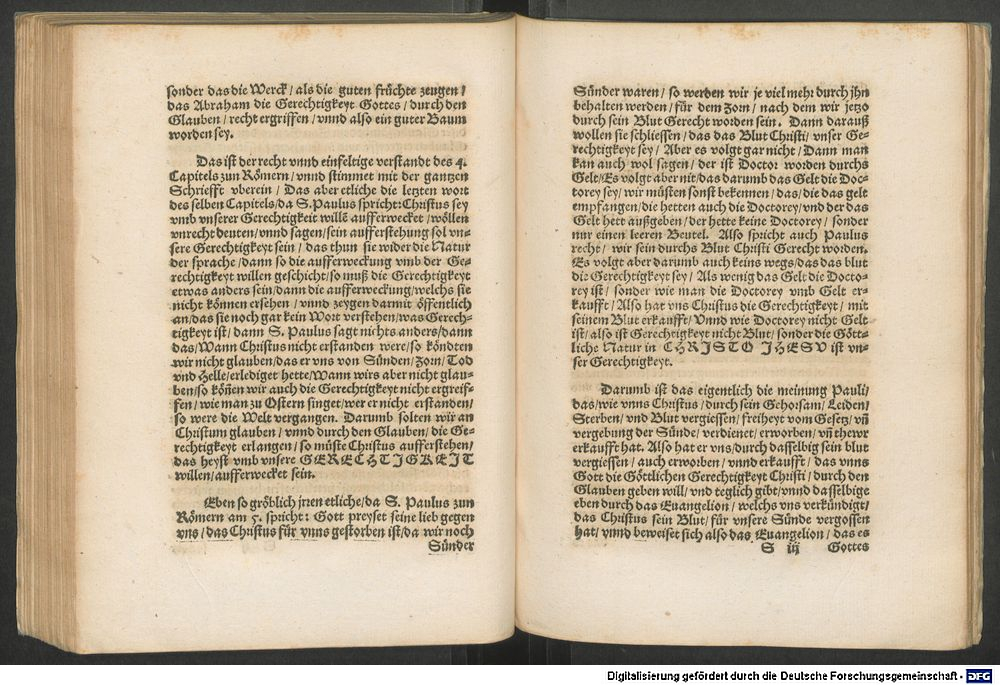 sonder das die Werck / als die guten früchte zeugen /
das Abraham die Gerechtigkeyt Gottes / durch den
Glauben / recht ergriffen / vnnd also ein guter Baum
worden sey.
Das ist der recht vnnd einfeltige verstandt des 4.
Capitels zun Römern / vnnd stimmet mit der gantzen
Schriefft vberein / Das aber etliche die letzten wort
des selben Capitels / da S. Paulus spricht: Christus sey
vmb vnserer Gerechtigkeit willē aufferwecket / wöllen
vnrecht deuten / vnnd sagen / sein aufferstehung sol vn=
sere Gerechtigkeyt sein / das thun sie wider die Natur
der sprache / dann so die aufferweckung vmb der Ge=
rechtigkeyt willen geschicht / so muß die Gerechtigkeyt
etwas anders sein / dann die aufferweckung / welchs sie
nicht können ersehen / vnnd zeygen darmit öffentlich
an / das sie noch gar kein Wort verstehen / was Gerech=
tigkeyt ist / dann S. Paulus sagt nichts anders / dann
das / Wann Christus nicht erstanden were / so köndten
wir nicht glauben / das er vns von Sünden / Zorn / Tod
vnd Helle / erlediget hette / Wann wirs aber nicht glau=
ben / so köñen wir auch die Gerechtigkeyt nicht ergreif=
fen / wie man zu Ostern singet / wer er nicht erstanden /
so were die Welt vergangen. Darumb solten wir an
Christum glauben / vnnd durch den Glauben / die Ge=
rechtigkeyt erlangen / so müste Christus aufferstehen /
das heyst vmb vnsere GERECHTIGKEIT
willen / aufferwecket sein.
Eben so gröblich jrren etliche / da S. Paulus zun
Römern am 5. spricht: Gott preyset seine lieb gegen
vns / das Christus für vnns gestorben ist / da wir noch
Sünder
Sünder waren / so werden wir je viel mehr durch jhn
behalten werden / für dem Zorn / nach dem wir jetzo
durch sein Blut Gerecht worden sein. Dann darauß
wollen sie schliessen / das das Blut Christi / vnser Ge=
rechtigkeyt sey / Aber es volgt gar nicht / Dann man
kan auch wol sagen / der ist Doctor worden durchs
Gelt / Es volgt aber nit / das darumb das Gelt die Doc=
torey sey / wir müsten sonst bekennen / das / die das gelt
empfangen / die hetten auch die Doctorey / vnd der das
Gelt hett außgeben / der hette keine Doctorey / sonder
nur einen leeren Beutel. Also spricht auch Paulus
recht / wir sein durchs Blut Christi Gerecht worden.
Es volgt aber darumb auch keins wegs / das das blut
die Gerechtigkeyt sey / Als wenig das Gelt die Docto=
rey ist / sonder wie man die Doctorey vmb Gelt er=
kaufft / Also hat vns Christus die Gerechtigkeyt / mit
seinem Blut erkaufft / Vnnd wie Doctorey nicht Gelt
ist / also ist Gerechtigkeyt nicht Blut / sonder die Gött=
liche Natur in CHRISTO JHESV ist vn=
ser Gerechtigkeyt.
Darumb ist das eigentlich die meinung Pauli /
das / wie vnns Christus / durch sein Gehorsam / Leiden /
Sterben / vnd Blut vergiessen / freiheyt vom Gesetz / vñ
vergebung der Sünde / verdienet / erworben / vñ thewr
erkaufft hat. Also hat er vns / durch dasselbig sein blut
vergiessen / auch erworben / vnnd erkaufft / das vnns
Gott die Göttlichen Gerechtigkeyt Christi / durch den
Glauben geben will / vnd teglich gibt / vnnd dasselbige
eben durch das Euangelion / welchs vns verkündigt /
das Christus sein Blut / für vnsere Sünde vergossen
hat / vnnd beweiset sich also das Euangelion / das es
S iij Gottes
Digitalisierung gefördert durch die Deutsche Forschungsgemeinschaft - DFG